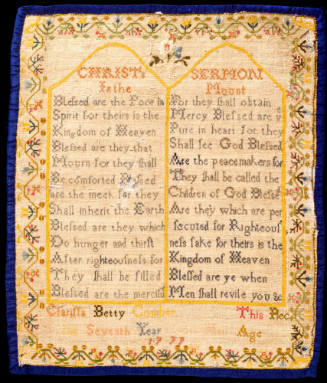 CHRISTs
In the
Blessed are the Poor in
Spirit for theirs is the
Kingdom of Heaven
Blessed are they that
Mourn for they shall
be comforted Blessed
are the meek for they
Shall inherit the Earth
Blessed are they which
Do hunger and thirst
After righteousness for
They shall be filled
Blessed are the merciful
SERMON
Mount
For they shall obtain
Mercy Blessed are y
Pure in heart for they
Shall see God Blessed
Are the peacemakers for
They shall be called the
Children of God Blesse
Are they which are per
secuted for Righteous
ness sake for theirs is the
Kingdom of Heaven
Blessed are ye when
Men shall revile you &
Betty This
Seventh Year Age